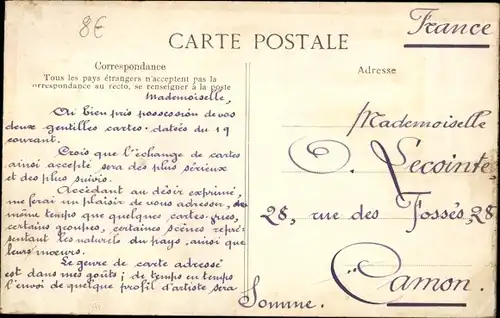 8€
France
CARTE POSTALE
Correspondance
Tous les pays étrangers n'acceptent pas la
correspondance au recto, se renseigner à la poste
Mademoiselle,
Ai bien pris possession de vos
deux gentilles cartes datées du 19
courant.
Crois que l'échange de cartes
ainsi accepté sera des plus sérieux
et des plus suivis.
Accédant au désir exprimé,
me ferai un plaisir de vous adresser, du
même temps que quelques cartes-vues,
certains groupes, certaines scènes repré-
sentant les naturels du pays, ainsi que
leurs moeurs.
Le genre de carte adressé
est dans mes goûts; de temps en temps
l'envoi de quelque profil d'artiste sera
Adresse
Mademoiselle
O. Lecointe,
28, rue des Fossés, 28
Camon.
Somme.